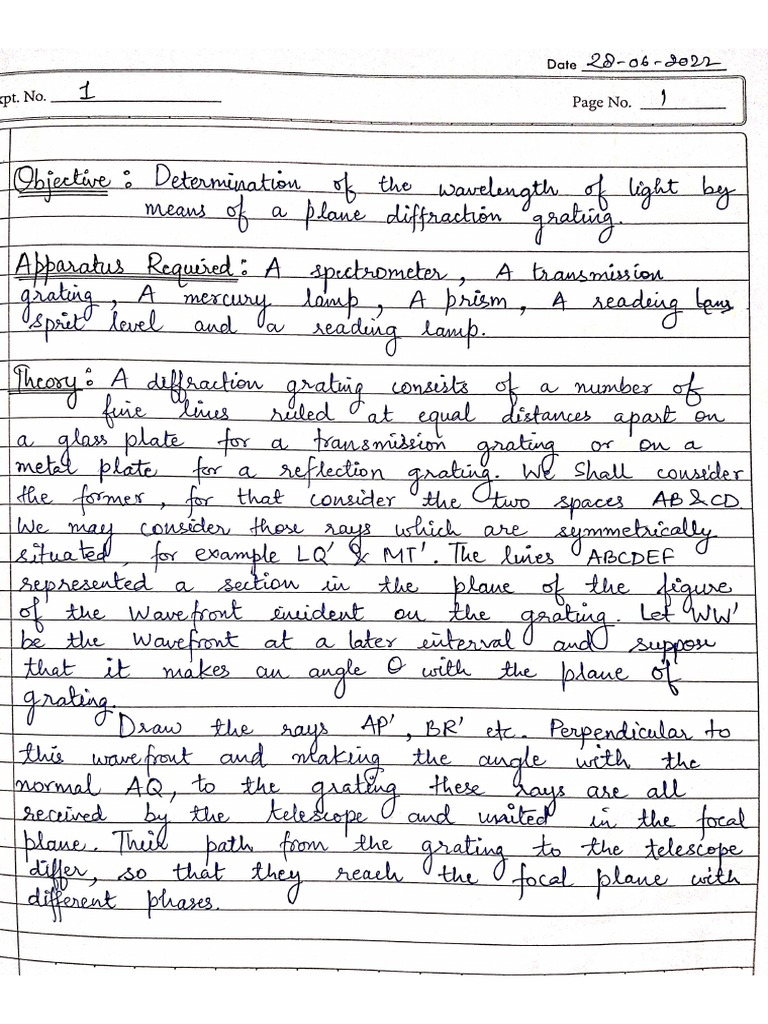 Date 28-06-2022
xpt. No. 1
Page No. 1
Objective : Determination of the wavelength of light by
means of a plane diffraction grating.
Apparatus Required : A spectrometer, A transmission
grating, A mercury lamp, A prism, A reading lens
sprit level and a reading lamp.
Theory : A diffraction grating consists of a number of
fine lines ruled at equal distances apart on
a glass plate for a transmission grating or on a
metal plate for a reflection grating. We shall consider
the former, for that consider the two spaces AB & CD.
We may consider those rays which are symmetrically
situated, for example LQ' & MT'. The lines ABCDEF
represented a section in the plane of the figure
of the wavefront incident on the grating. Let WW'
be the wavefront at a later interval and suppose
that it makes an angle θ with the plane of
grating.
Draw the rays AP', BR' etc. Perpendicular to
this wavefront and making the angle with the
normal AQ, to the grating these rays are all
received by the telescope and united in the focal
plane. Their path from the grating to the telescope
differ, so that they reach the focal plane with
different phases.